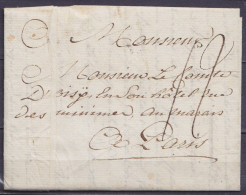 Monsieur
Monsieur Le Comte
D'oisÿ en Son hôtel rue
des minimes au marais
A Paris